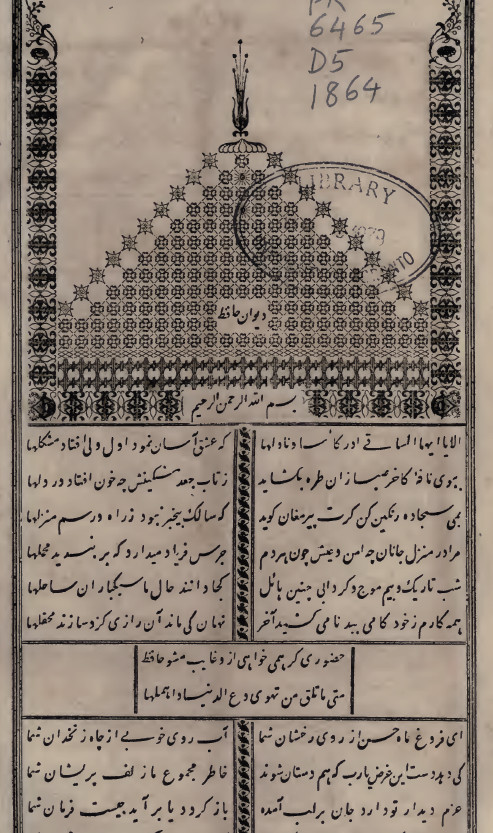 PK
6465
D5
1864
LIBRARY
1979
دیوان حافظ
بسم الله الرحمن الرحیم
الا یا ایها الساقے ادر کاسا و ناولها که عشق آسان نمود اول ولی افتاد مشکلها
ببوی نافهٔ کاخر صبا زان طره بکشاید ز تاب جعد مشکینش چه خون افتاد در دلها
بمی سجاده رنگین کن گرت پیر مغان گوید که سالک بیخبر نبود ز راه و رسم منزلها
مرا در منزل جانان چه امن و عیش چون هر دم جرس فریاد میدارد که بر بندید محملها
شب تاریک و بیم موج و گردابی چنین هائل کجا دانند حال ما سبکباران ساحلها
همه کارم ز خود کامی ببد نامی کشید آخر نهان کی ماند آن رازی کزو سازند محفلها
حضوری گر همی خواهی ازو غایب مشو حافظ
متی ما تلق من تهوی دع الدنیا و اهملها
ای فروغ ماه حسن از روی رخشان شما آب روی خوبے از چاه زنخدان شما
کی دهد دست این غرض یارب که هم دستان شوند خاطر مجموع ما زلف پریشان شما
عزم دیدار تو دارد جان بر لب آمده باز گردد یا بر آید چیست فرمان شما